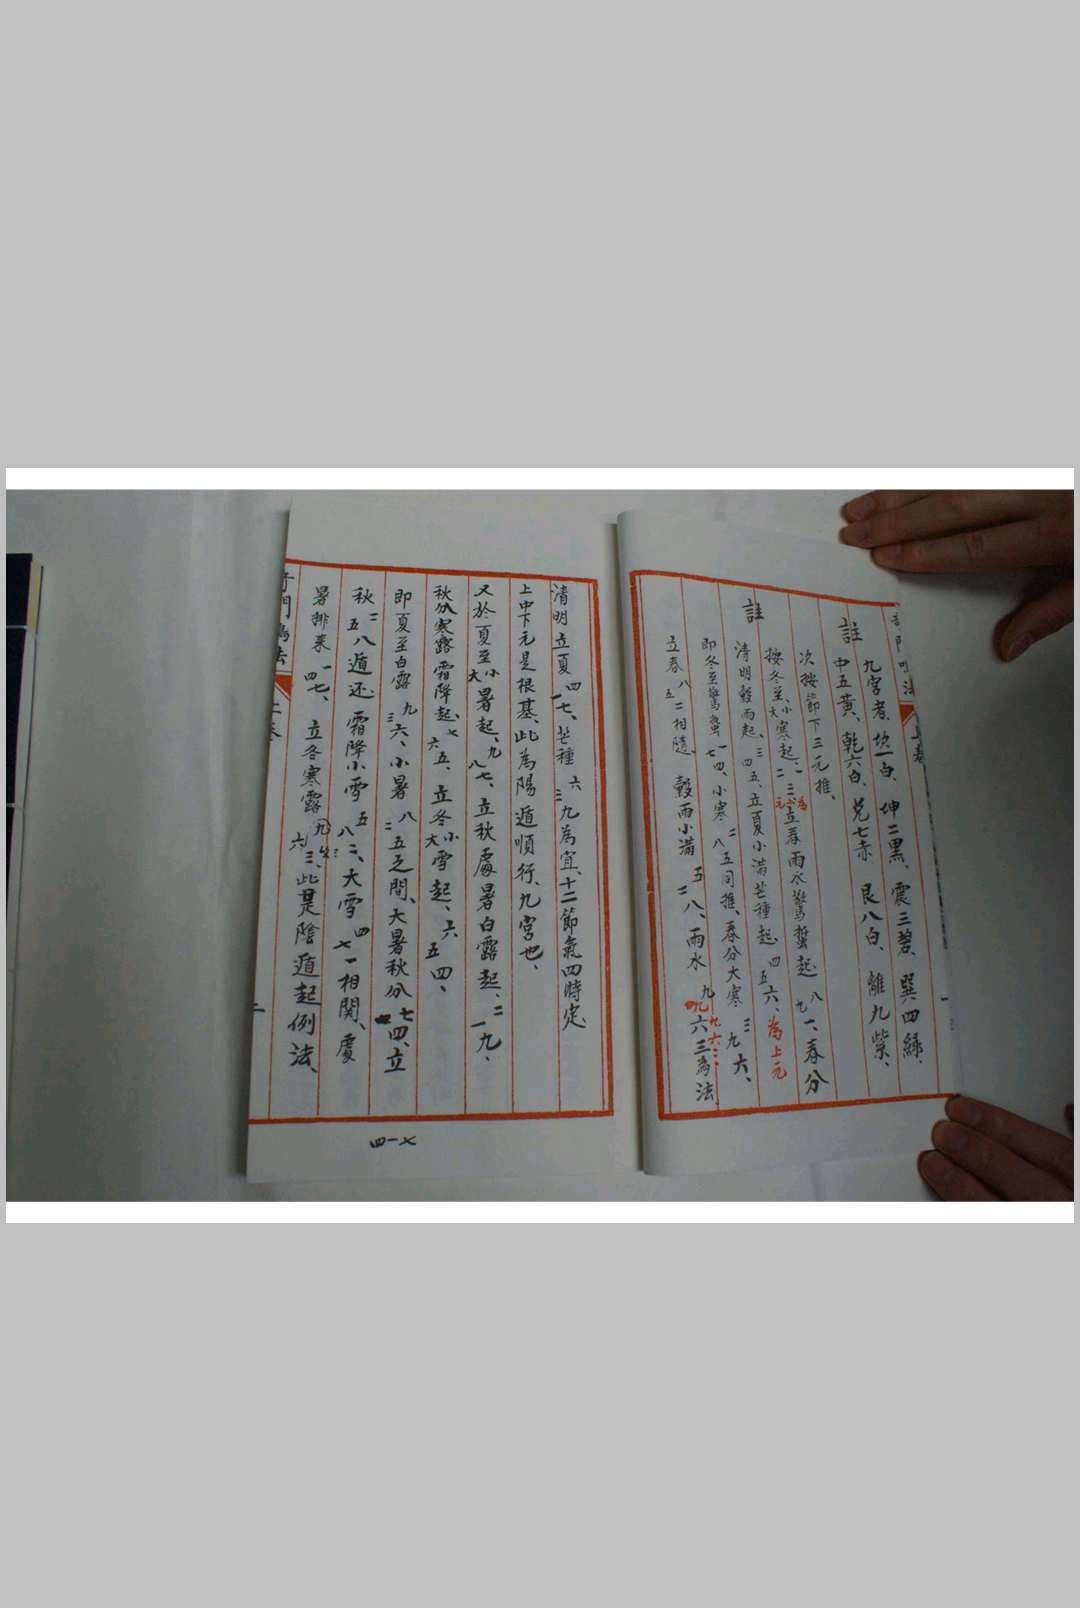 註
九字者、坎一白、坤二黑、震三碧、巽四綠、
中五黃、乾六白、兌七赤、艮八白、離九紫、
次按節下三元推、
註
按冬至、小大寒起、一二三、立春雨水驚蟄起、八九一、春分
為
元
清明穀雨起、三四五、立夏小滿芒種起、四五六、為上元
即冬至驚蟄一七四、小寒二八五同推、春分大寒三九六、
立春八五二相隨、穀雨小滿五二八、雨水九六三為法、
九六三
清明立夏四一七、芒種六三九為宜、十二節氣四時定
上中下元是根基、此為陽遁順行、九宮也、
又於夏至小大暑起、九八七、立秋處暑白露起、二一九、
秋分寒露霜降起、七六五、立冬小大雪起、六五四、
即夏至白露九三六、小暑八二五之間、大暑秋分七一四、立
秋二五八遁还、霜降小雪五八二、大雪四七一相関、處
暑排来一四七、立冬寒露九六三、此是陰遁起例法、
上卷
二
四一七